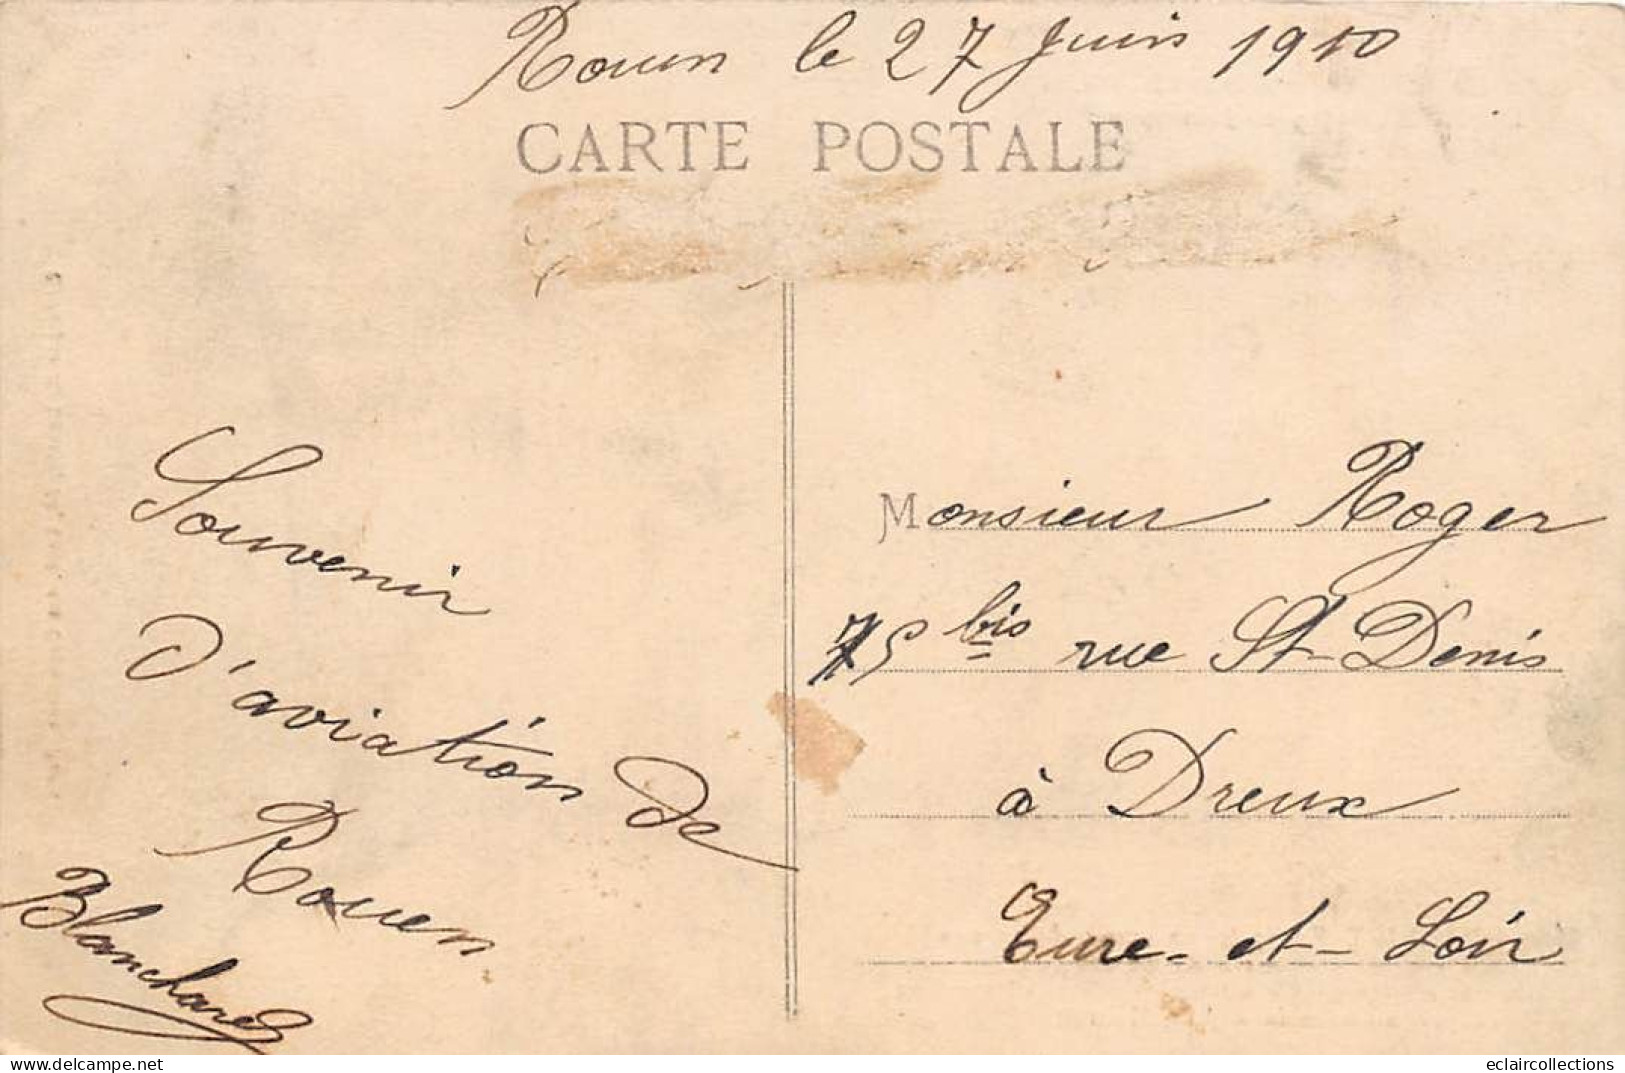 Rouen le 27 Juin 1910
CARTE POSTALE
Souvenir
d'aviation de
Rouen
Blanchard
Monsieur Roger
75 bis rue St-Denis
à Dreux
Eure-et-Loir
eclaircollections